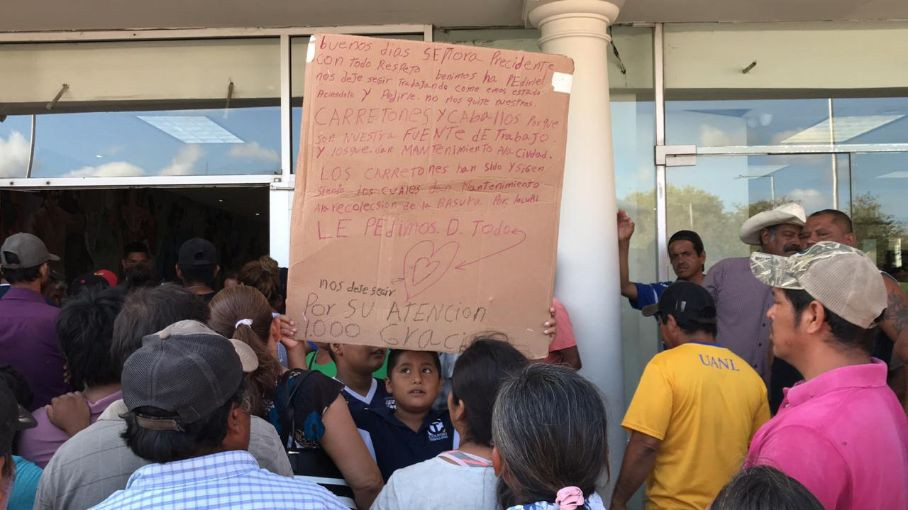 buenos dias SEñora Precidente
con todo Respeto benimos ha PEdirlel
nos deje segir Trabajando como emos estado
Aciendolo y Pedirle. no nos quite nuestros.
CARRETONES Y CABAllOS Porque
son NUESTRA FUENTE dE Trabajo
Y los que dan MANTENIMIENTO A la CIUdad.
LOS CARRETONES han Sido Y SIGEN
Siendo los cuales dan Mantenimiento
A la recoleccion de la BASURA Por lo cual
LE PEdimos. D. Todo
nos deje segir
Por SU ATENCION
1.000 Gracias
UANL